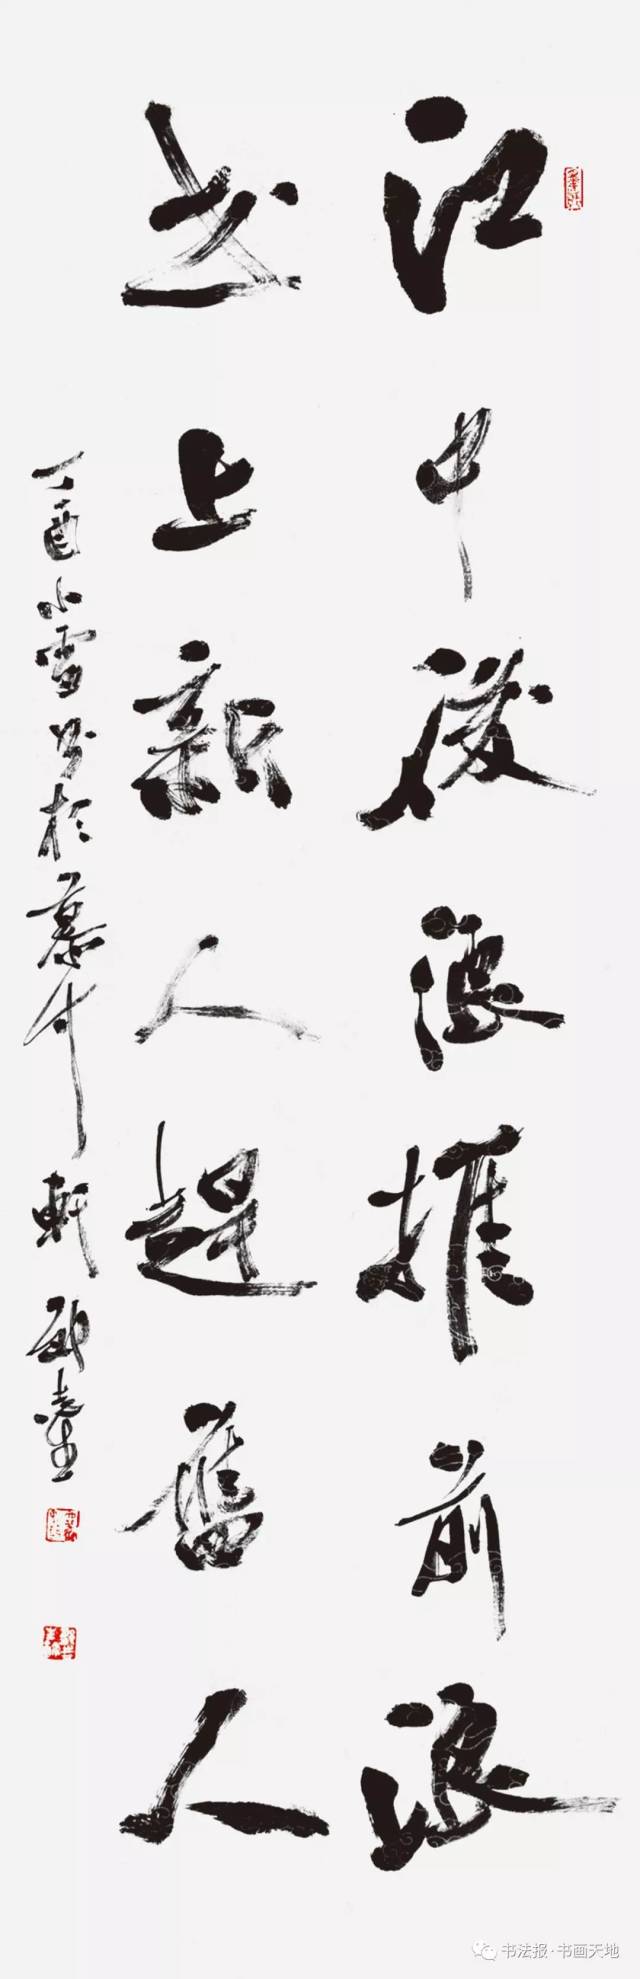 江中後浪推前浪
世上新人趕舊人
丁酉小雪书於慕軒
书法报·书画天地